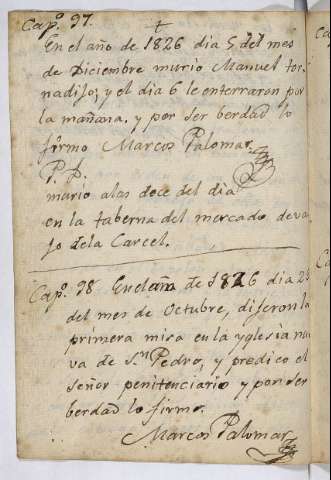 Cap.º 97.
En el año de 1826 dia 5 del mes
de Diciembre murio Manuel tor
nadijo; y el dia 6 le enterraron por
la mañana. y por ser berdad lo
firmo Marcos Palomar.
P. P.
murio alas doce del dia
en la taberna del mercado deva
jo dela Carcel.
Cap.º 98. En el año de 1826 dia
del mes de Octubre, dijeron la
primera misa en la yglesia nu
va de Sⁿ Pedro, y predico el
señor penitenciario y por ser
berdad lo firmo.
Marcos Palomar